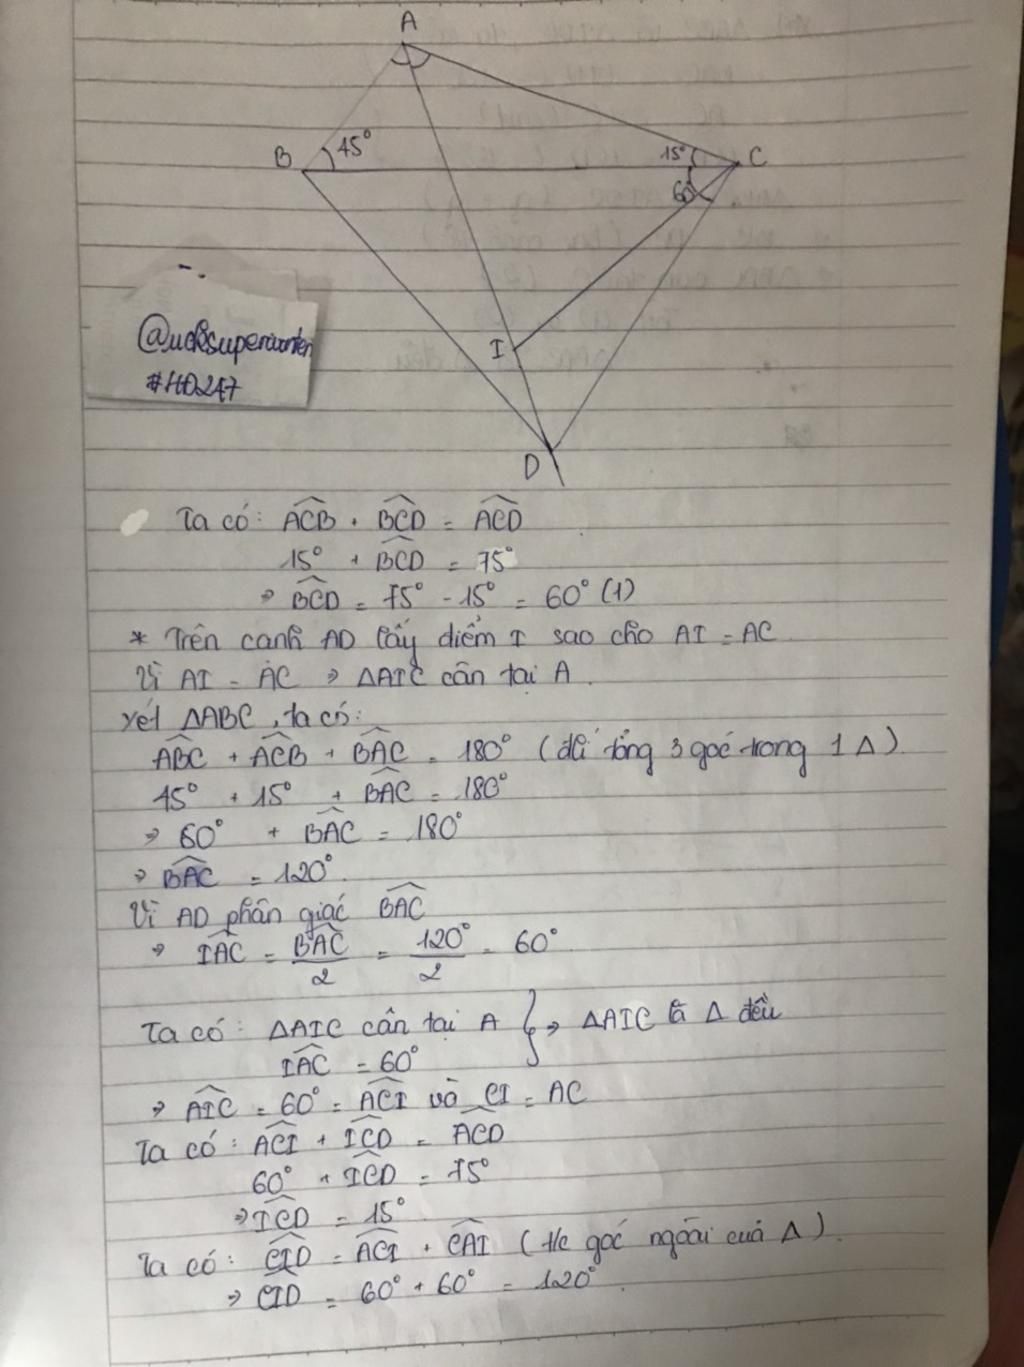 A
B
45°
15°
C
60
I
D
#HD247
Ta có: ACB + BCD = ACD
15° + BCD = 75°
⇒ BCD = 75° - 15° = 60° (1)
* Trên cạnh AD lấy điểm I sao cho AI = AC
Vì AI = AC ⇒ ΔAIC cân tại A.
Xét ΔABC, ta có:
ABC + ACB + BAC = 180° (đlí tổng 3 góc trong 1 Δ).
45° + 15° + BAC = 180°
⇒ 60° + BAC = 180°
⇒ BAC = 120°.
Vì AD phân giác BAC
⇒ IAC = BAC/2 = 120°/2 = 60°
Ta có: ΔAIC cân tại A } ⇒ ΔAIC là Δ đều
IAC = 60°
⇒ AIC = 60° = ACI và CI = AC
Ta có: ACI + ICD = ACD
60° + ICD = 75°
⇒ ICD = 15°
Ta có: CID = ACI + CAI (t/c góc ngoài của Δ).
⇒ CID = 60° + 60° = 120°.